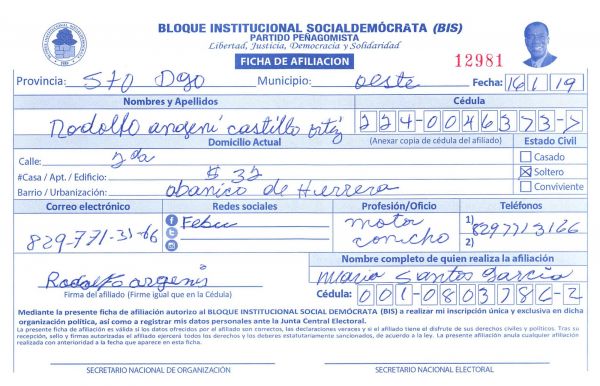 BLOQUE INSTITUCIONAL SOCIALDEMÓCRATA (BIS)
PARTIDO PEÑAGOMISTA
Libertad, Justicia, Democracia y Solidaridad
FICHA DE AFILIACION
12981
Provincia: STO Dgo Municipio: Oeste Fecha: 16/1/19
Nombres y Apellidos Cédula
Rodolfo argeni castillo ortiz 224-0046373-7
Domicilio Actual (Anexar copia de cédula del afiliado) Estado Civil
Calle: 2da
Casado
#Casa / Apt. / Edificio: $ 32
Soltero
Barrio / Urbanización: abanico de Herrera
Conviviente
Correo electrónico Redes sociales Profesión/Oficio Teléfonos
829-771-31-66 motor 1) 8297713166
concho 2)
Nombre completo de quien realiza la afiliación
Rodolfo argenis Maria Santos García
Firma del afiliado (Firme igual que en la Cédula) Cédula: 001-0803786-2
Mediante la presente ficha de afiliación autorizo al BLOQUE INSTITUCIONAL SOCIAL DEMÓCRATA (BIS) a realizar mi inscripción única y exclusiva en dicha
organización política, así como a registrar mis datos personales ante la Junta Central Electoral.
La presente ficha de afiliación es válida si los datos ofrecidos por el afiliado son correctos, las declaraciones veraces y si el afiliado tiene el disfrute de sus derechos civiles y políticos. Tras su
recepción, sello y firmas autorizadas el afiliado ejercerá todos los derechos y los deberes estatutariamente sancionados, de acuerdo a la ley. La presente afiliación anula cualquier afiliación
realizada con anterioridad a la fecha que aparece en esta ficha.
SECRETARIO NACIONAL DE ORGANIZACIÓN SECRETARIO NACIONAL ELECTORAL